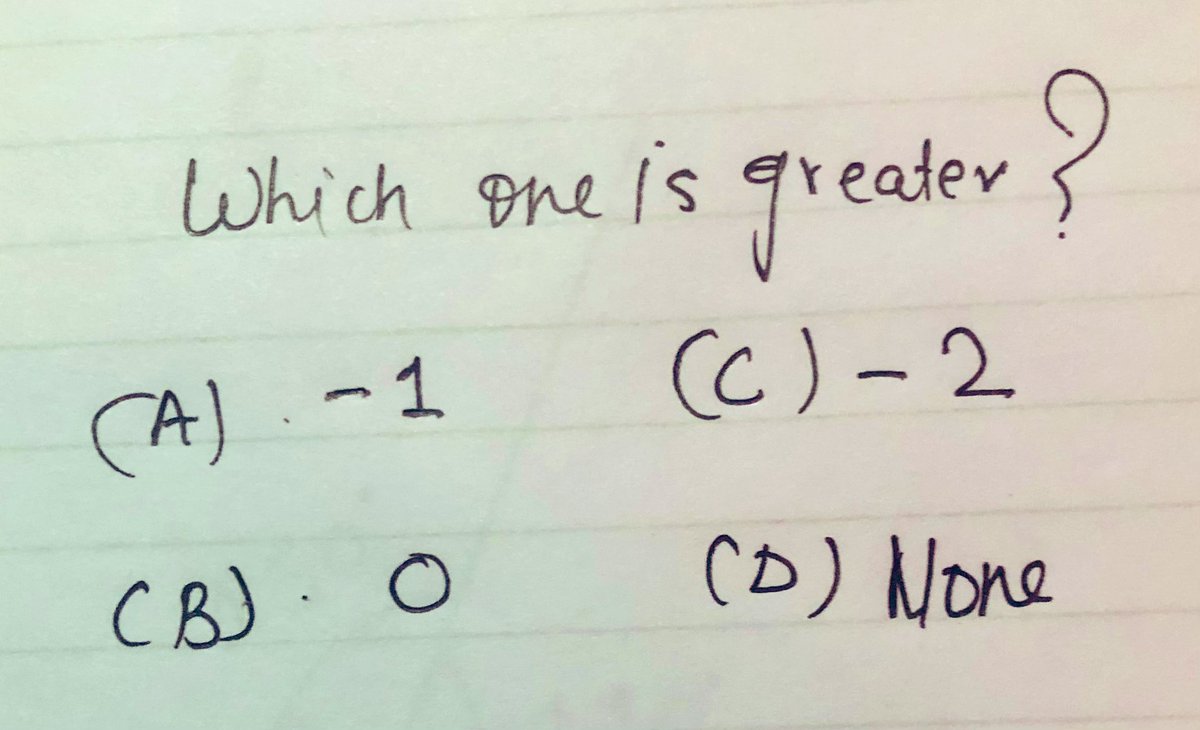 Which one is greater?
(A). -1 (C) - 2
(B). 0 (D) None